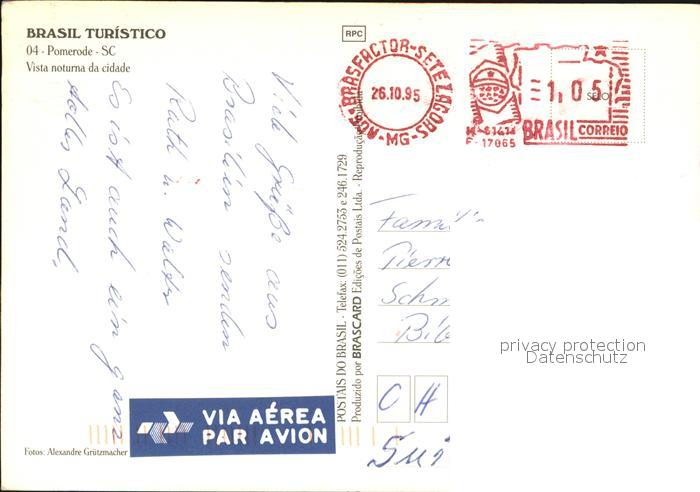 BRASIL TURÍSTICO
04 - Pomerode - SC
Vista noturna da cidade
Viele Grüße aus
Brasilien senden
Ruth u. Walter
Es ist auch ein ganz
tolles Land,
Fotos: Alexandre Grützmacher
VIA AÉREA
PAR AVION
POSTAIS DO BRASIL - Telefax: (011) 524.2753 e 246.1729
Produzido por BRASCARD Edições de Postais Ltda. - Reprodução
RPC
BRASFACTOR-SETE LAGOAS
-MG-
26.10.95
1,05
SELO
BRASIL CORREIO
F-17065
Famili
Pierr
Schm
Bib
CH
Sui
privacy protection
Datenschutz